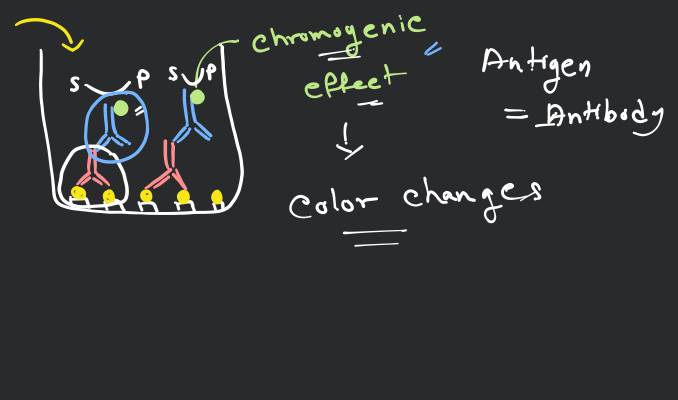 chromogenic
effect
Color changes
Antigen
= Antibody
S P S P